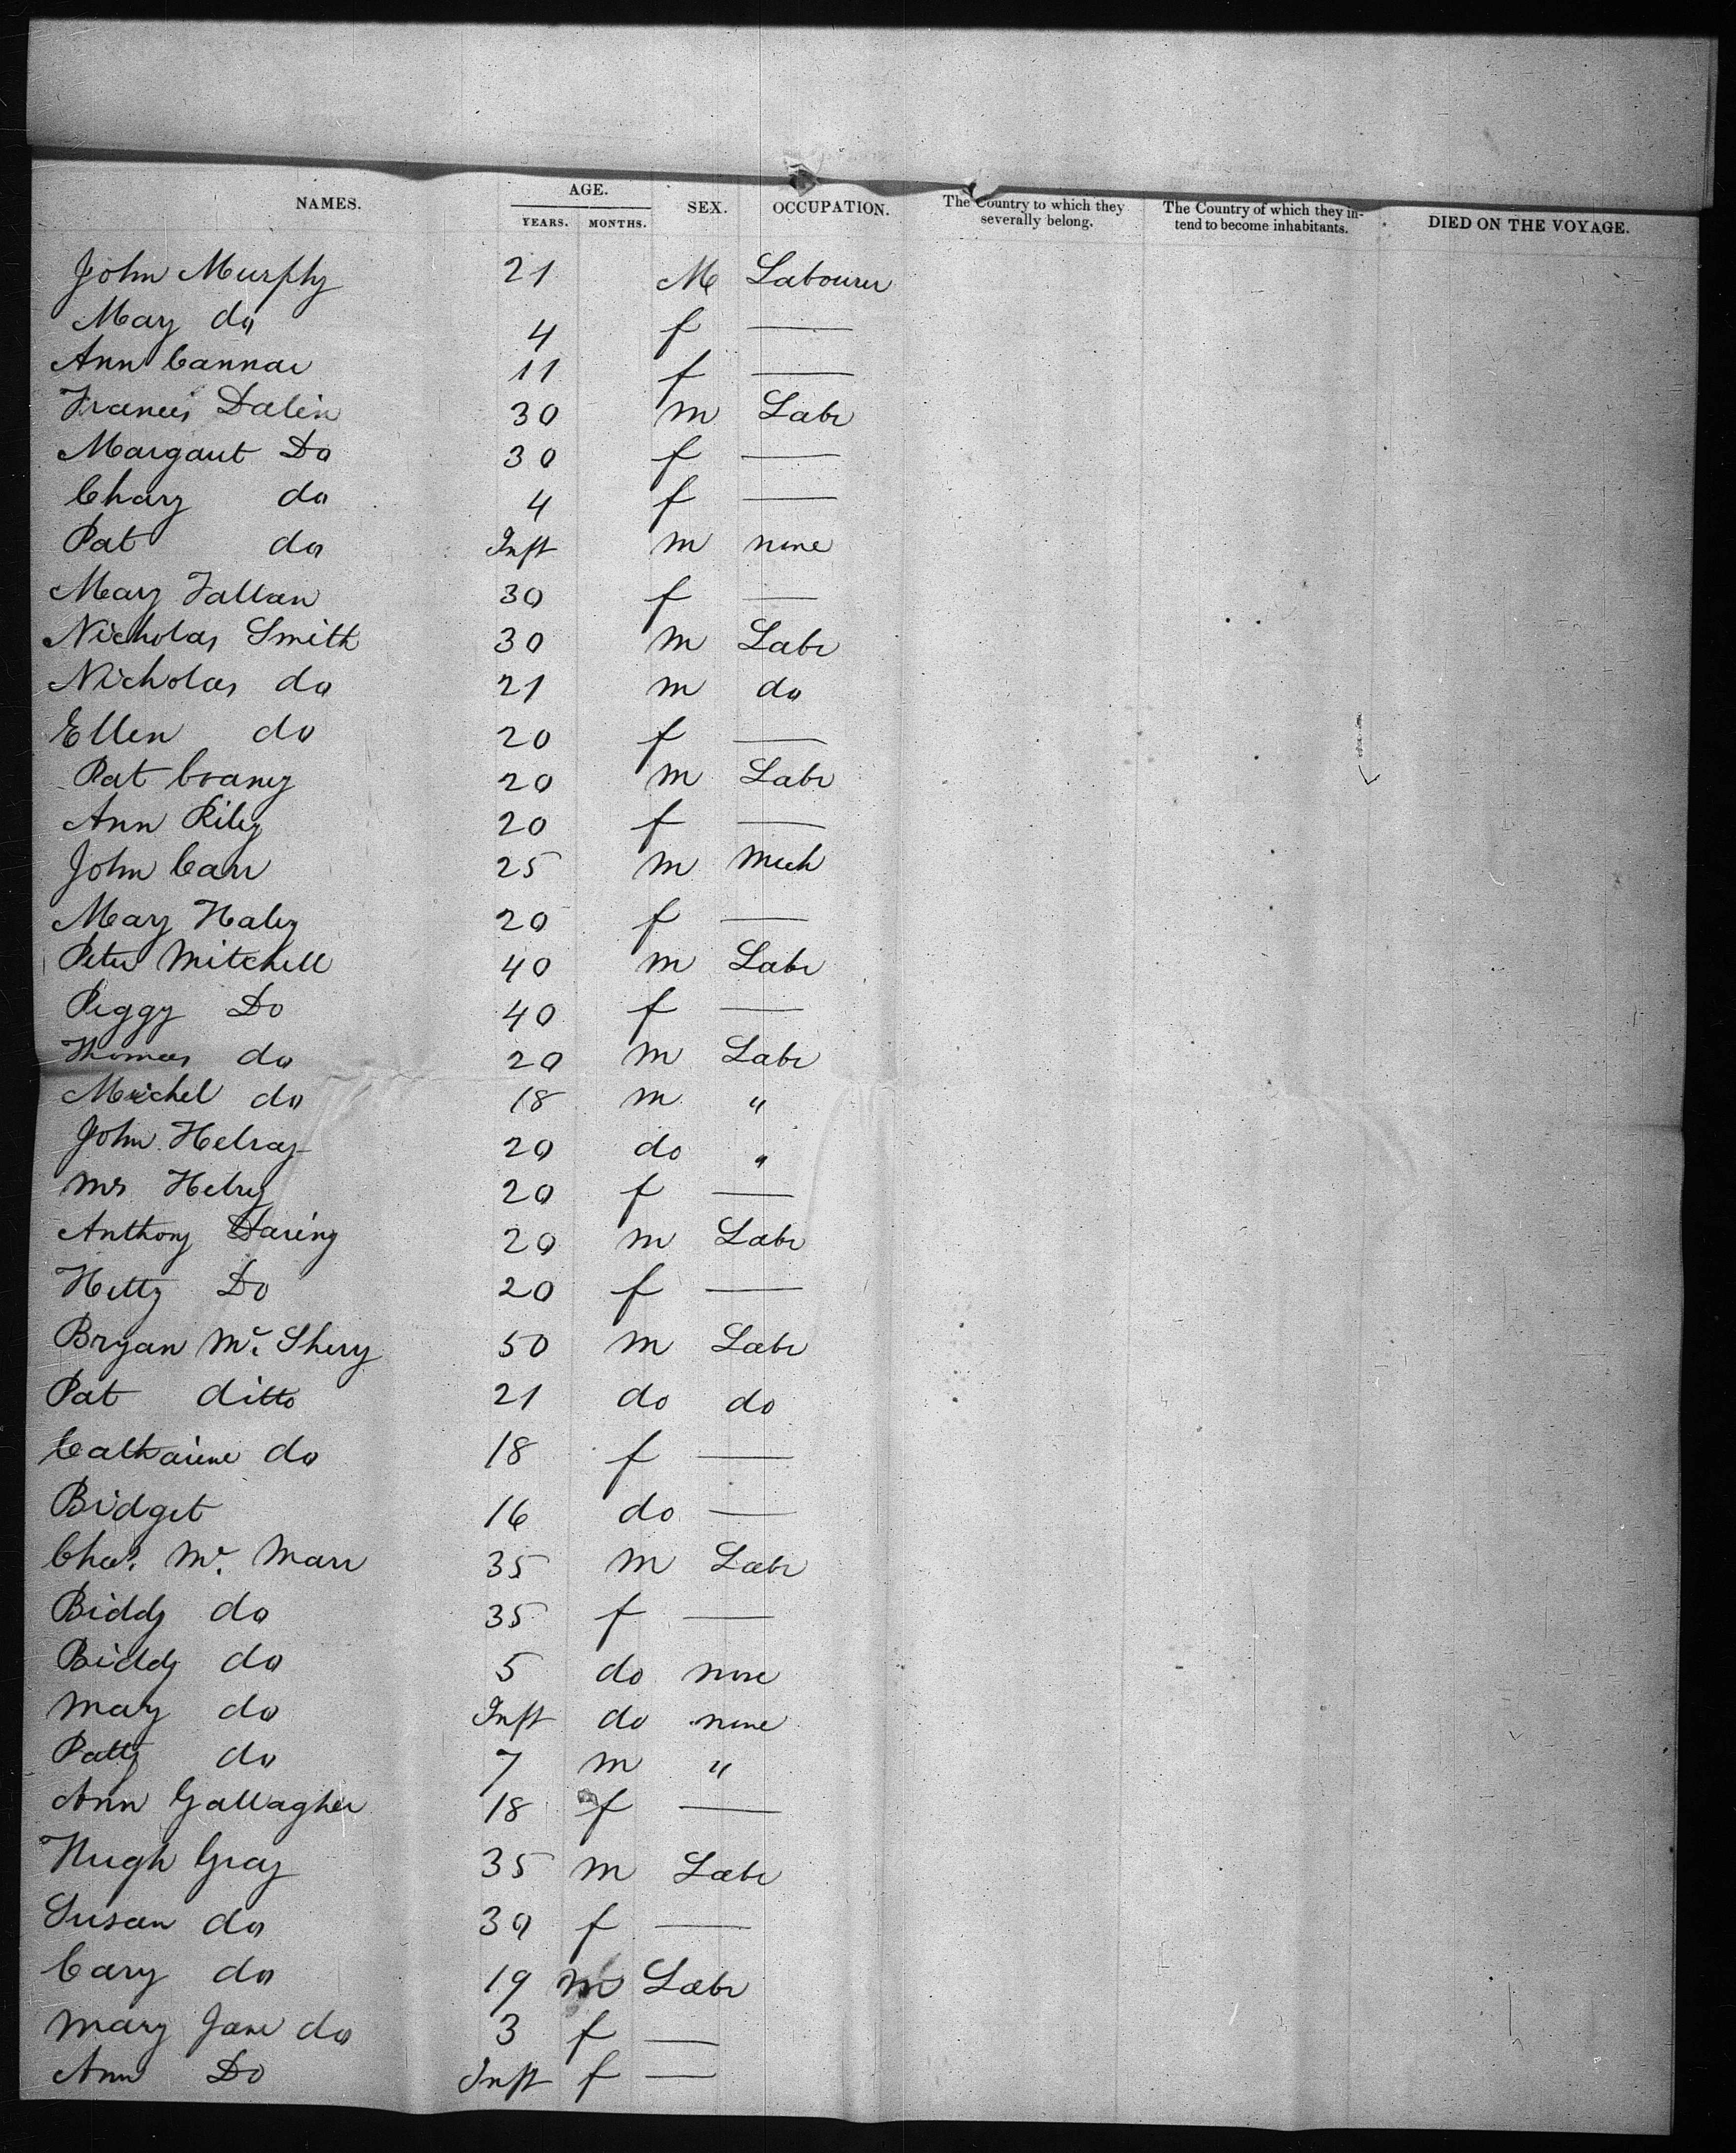 NAMES. AGE. YEARS. MONTHS. SEX. OCCUPATION. The Country to which they severally belong. The Country of which they intend to become inhabitants. DIED ON THE VOYAGE.
John Murphy 21 M Labourer
Mary do 4 f —
Ann Cannar 11 f —
Francis Dalin 30 m Labr
Margaret Do 30 f —
Chary do 4 f —
Pat do Inft m none
Mary Fallan 30 f —
Nicholas Smith 30 m Labr
Nicholas do 21 m do
Ellen do 20 f —
Pat Crany 20 m Labr
Ann Riley 20 f —
John Carr 25 m Mech
Mary Haley 20 f —
Peter Mitchell 40 m Labr
Peggy Do 40 f —
Thomas do 20 m Labr
Michel do 18 m "
John Helray 20 do "
Mrs Helry 20 f —
Anthony 20 m Labr
Hetty Do 20 f —
Bryan Mc. Shery 50 m Labr
Pat ditto 21 do do
Catharine do 18 f —
Bidget 16 do —
Chas. Mc. Marr 35 m Labr
Biddy do 35 f —
Biddy do 5 do none
Mary do Inft do none
Patty do 7 m "
Ann Gallagher 18 f —
Hugh Gray 35 m Labr
Susan do 30 f —
Cary do 19 m Labr
Mary Jane do 3 f —
Ann Do Inft f —